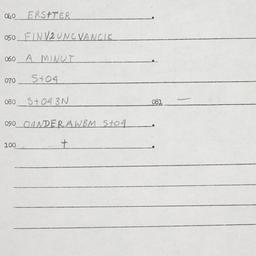 040 ERSTTER.
050 FINV2UNGVANCIE
060 A MINUT.
070 St04
080 St043N 081 —
090 OANDERAWBM St04.
100 t.